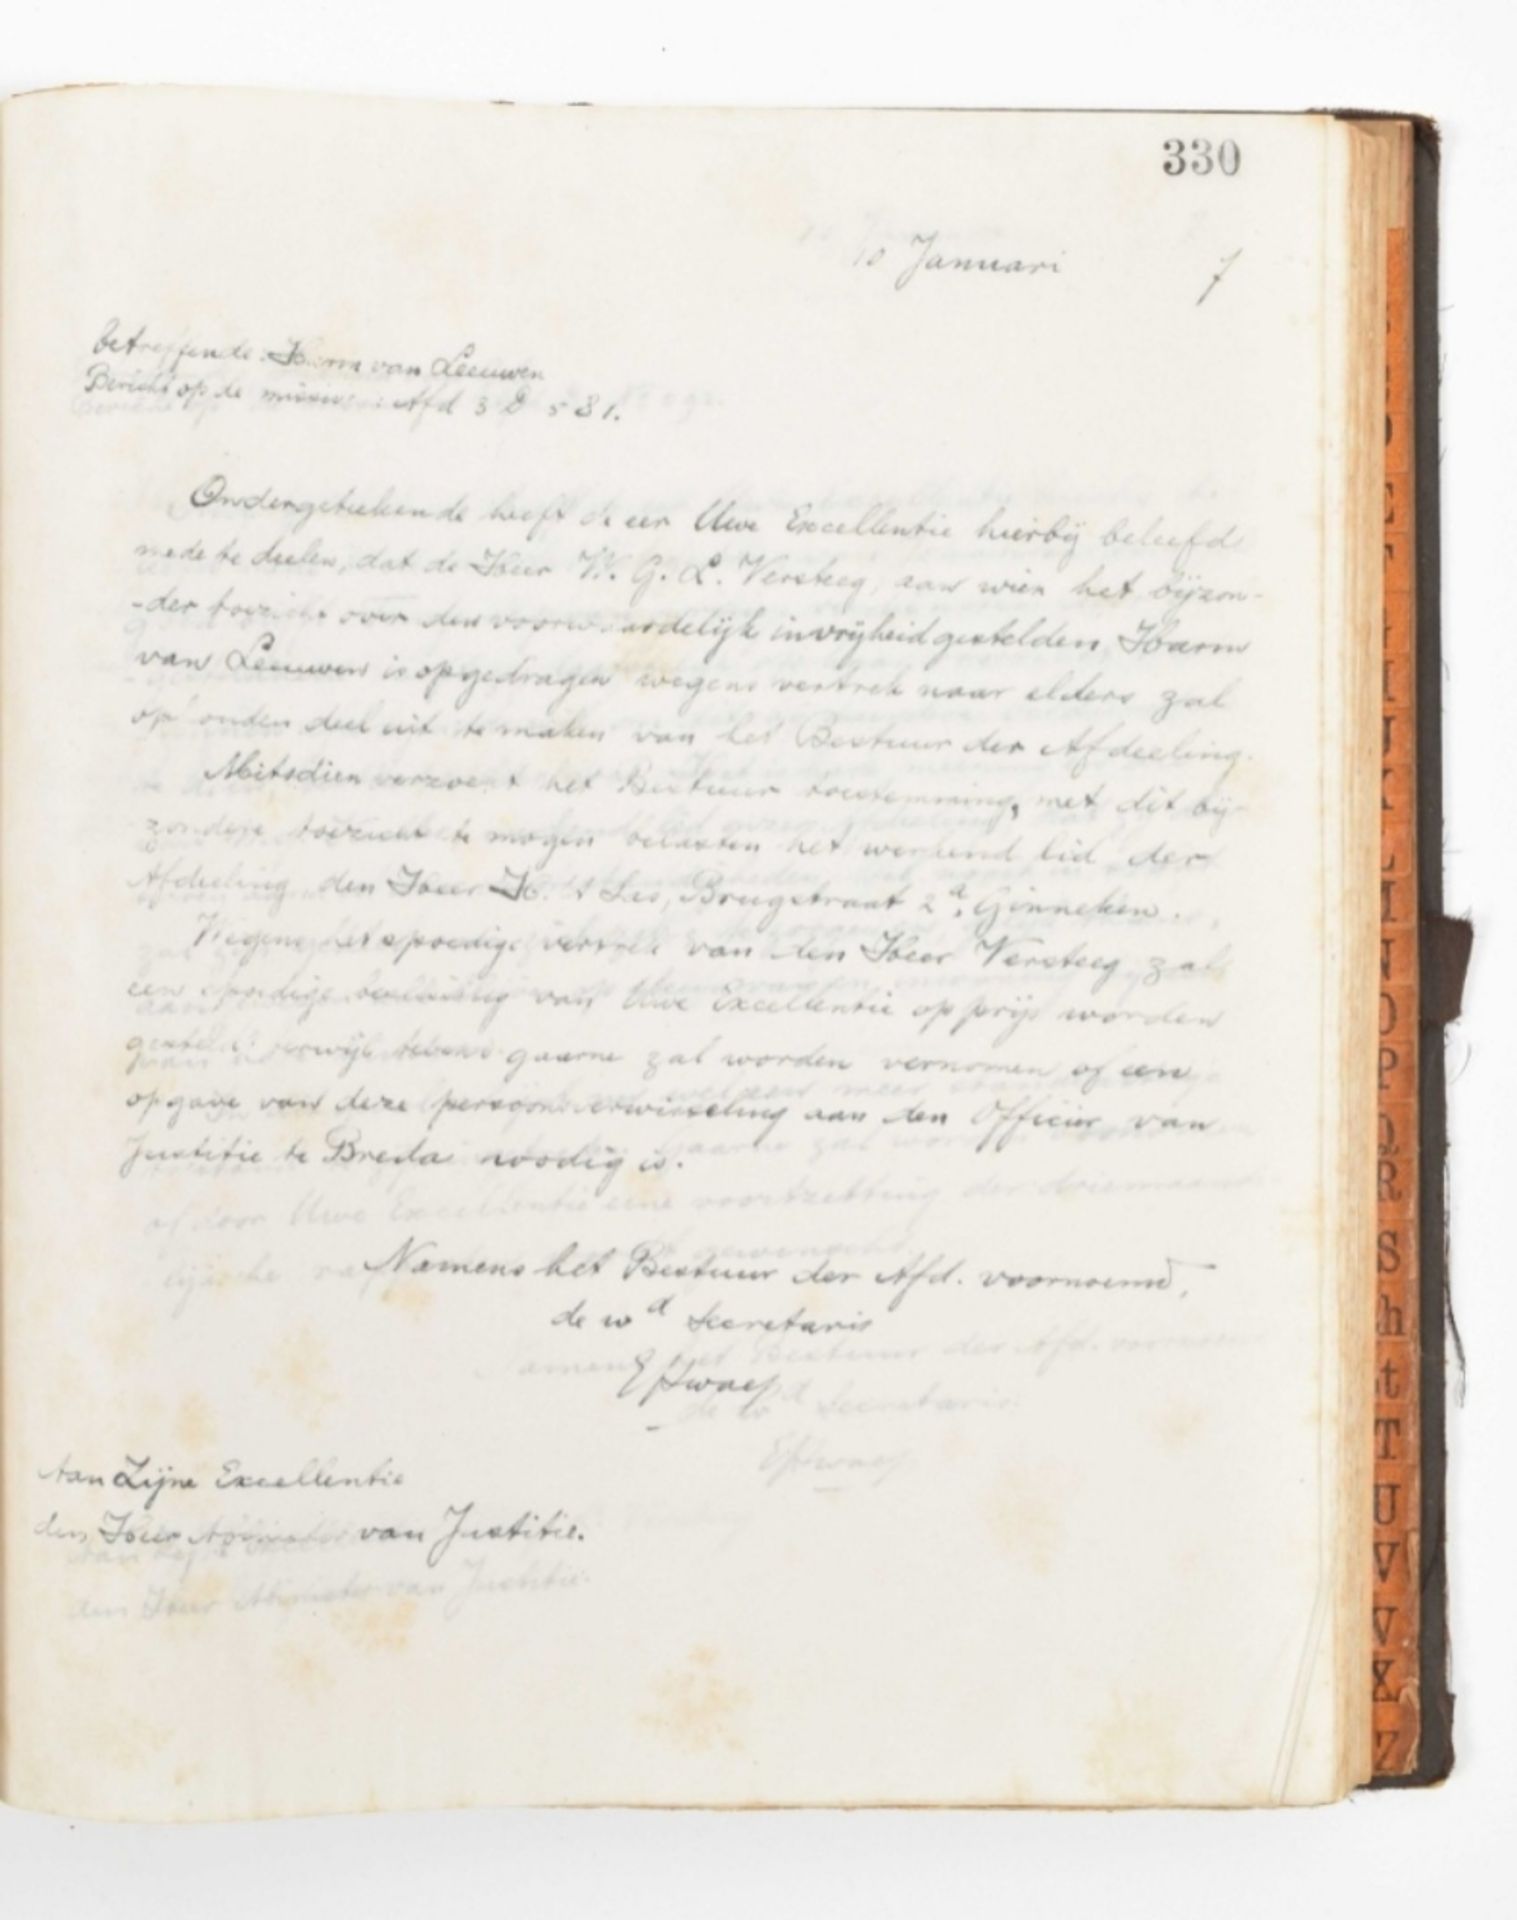 330
10 Januari 7
betreffende: Harm van Leeuwen
Bericht op de missive: Afd 3 D 531.
Ondergeteekende heeft de eer Uwe Excellentie hierbij beleefd
mede te deelen, dat de Heer W. G. L. Versteeg, aan wien het bijzon-
-der toezicht over den voorwaardelijk invrijheidgestelden Harm
van Leeuwen is opgedragen wegens vertrek naar elders zal
ophouden deel uit te maken van het Bestuur der Afdeeling.
Mitsdien verzoekt het Bestuur toestemming, met dit bij-
zondere toezicht te mogen belasten het werkend lid der
Afdeeling, den Heer H. Brugstraat 2a, Ginneken.
Wegens het spoedige vertrek van den Heer Versteeg zal
een spoedige beslissing van Uwe Excellentie op prijs worden
gesteld terwijl tevens gaarne zal worden vernomen of een
opgave van deze persoonsverwisseling aan den Officier van
Justitie te Breda noodig is.
of door Uwe Excellentie eene voortzetting der driemaande
lijksche gewenscht
Namens het Bestuur der Afd. voornoemd,
de wd Secretaris
Namens het Bestuur der Afd. voornoemd
de wd Secretaris
Aan Zijne Excellentie
den Heer Minister van Justitie.
Aan Zijne
den Heer Minister van Justitie.
E
F
I
J
K
L
N
O
P
Q
R
S
T
U
V
X
Z